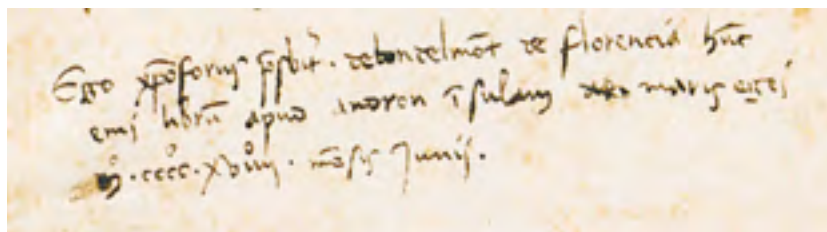 Ego xp̄oforus p̄sbit̄ . debondelmōt de florencia hūc
emi librū apud andron īsulam maris egei
m̊ . cccc̊ . xviiij̊ . mēsis Junij .